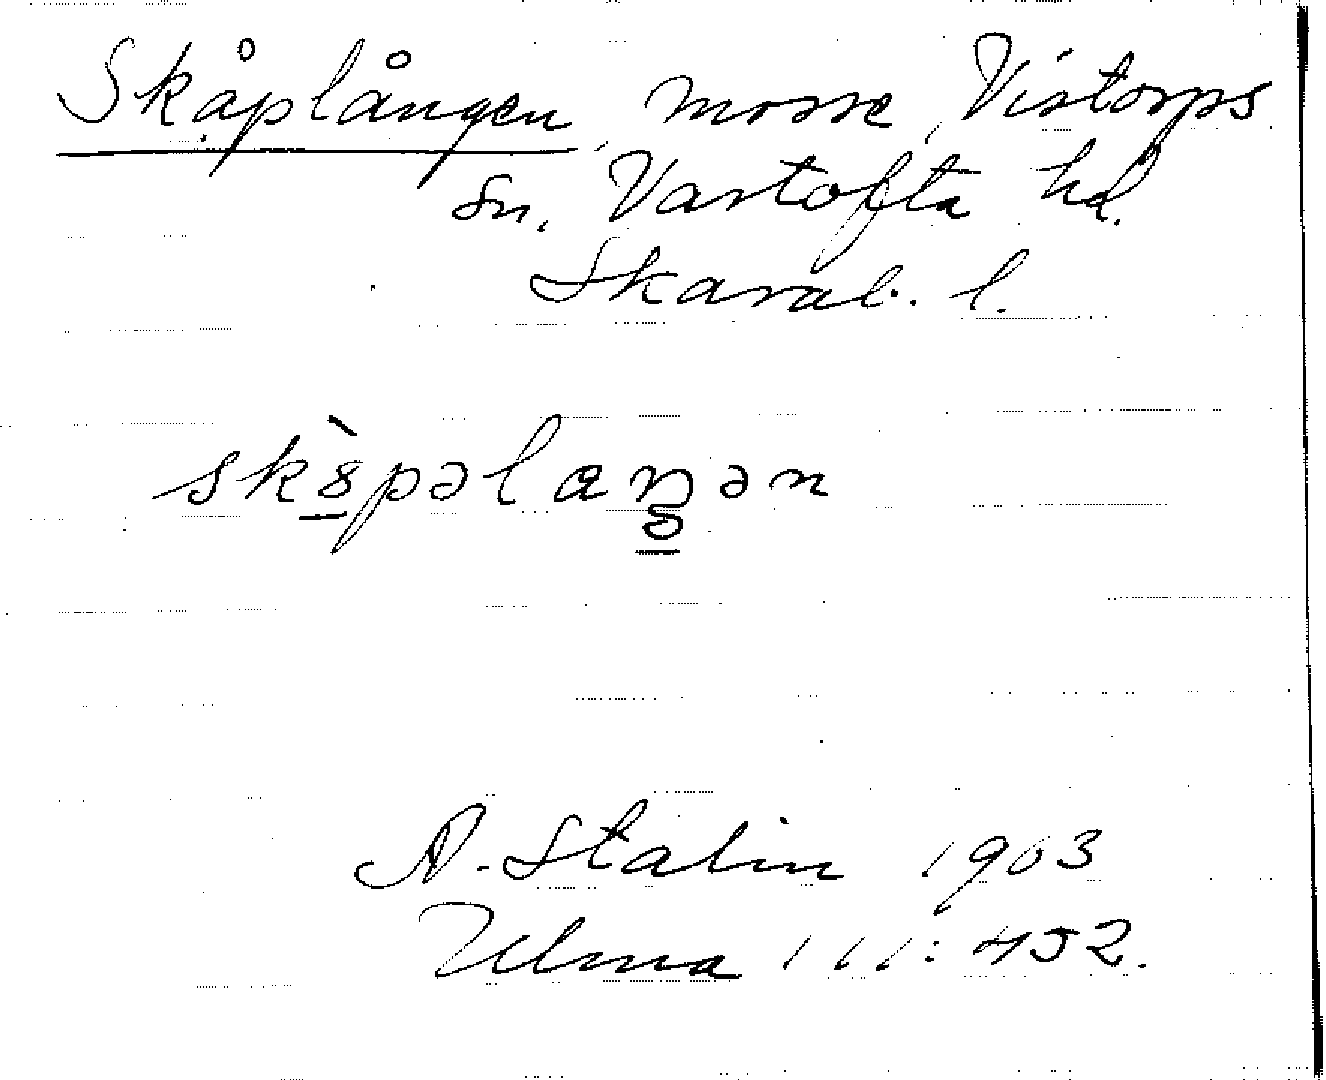 Skåplången, mosse, Vistorps
sn, Vartofta hd.
Skarab. l.
A. Stalin 1903
Ulma 111:452.